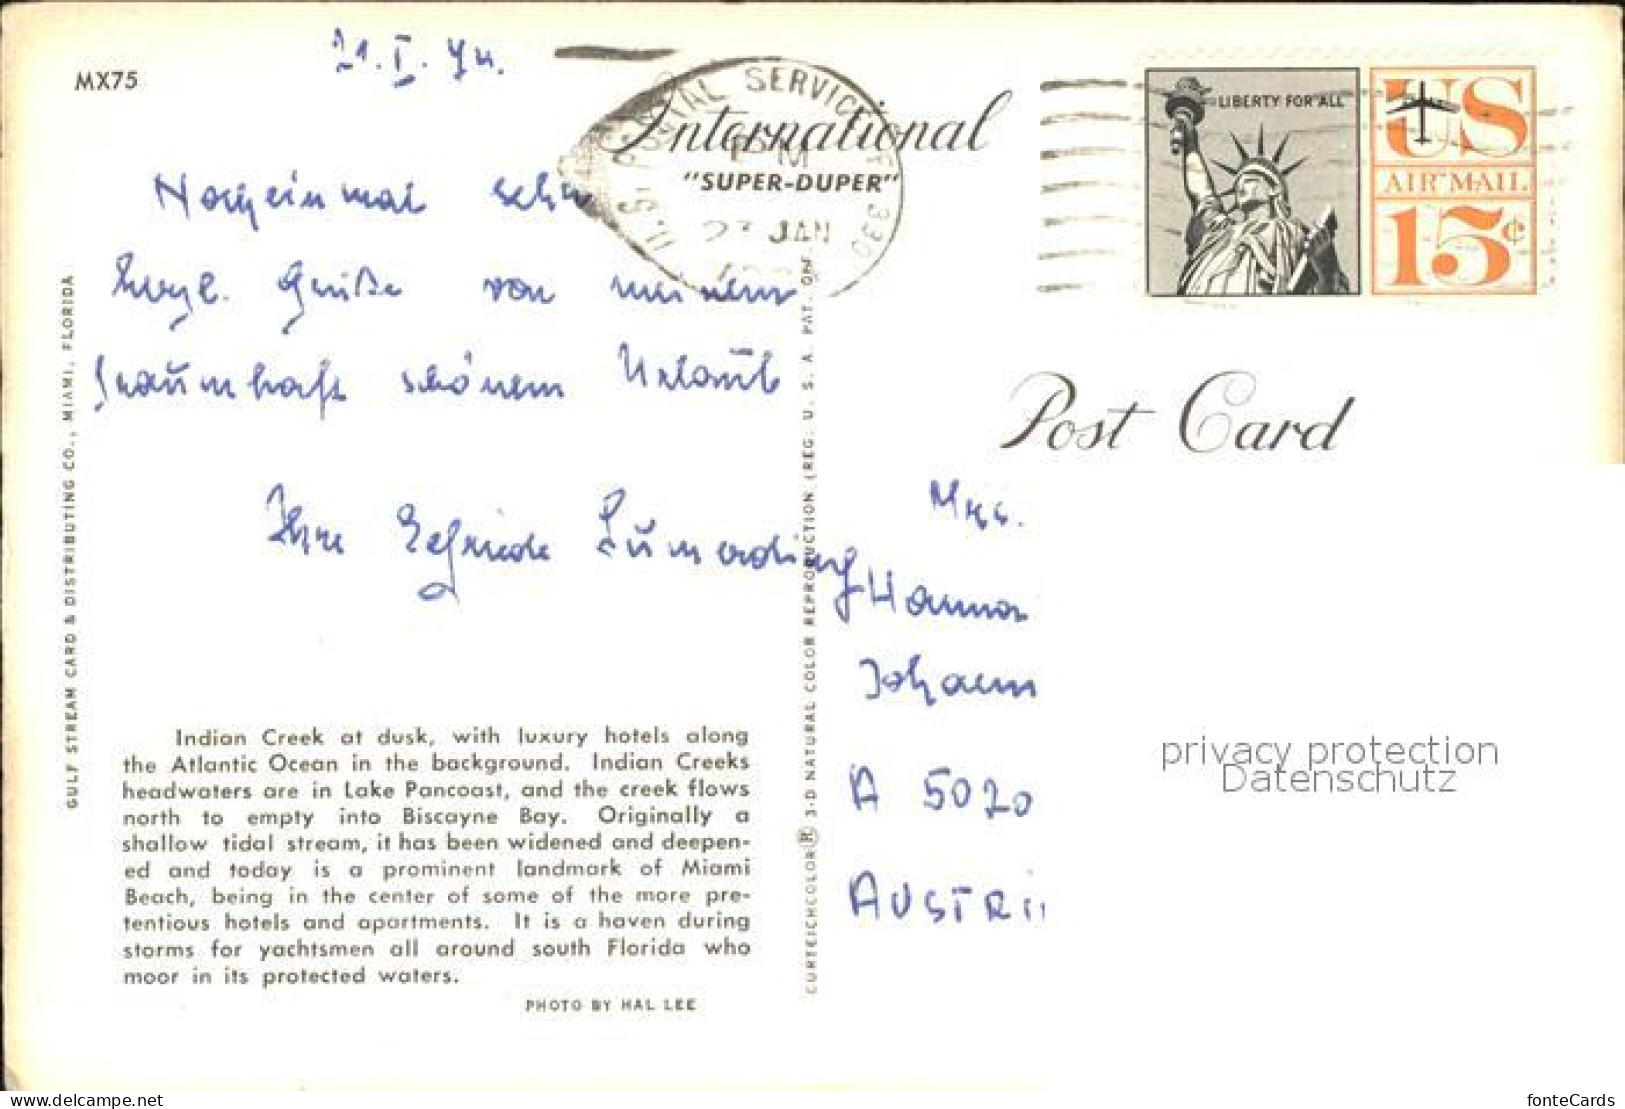 MX75
21.I.74.
U.S. POSTAL SERVICE 330
PM
JAN
International
"SUPER-DUPER"
LIBERTY FOR ALL
US
AIR MAIL
15¢
Nocheinmal sehr
herzl. Grüße von meinem
traumhaft schönem Urlaub
Ihre Elfriede
Post Card
Mrs.
Hanna
Johann
A 5020
AUSTRI
GULF STREAM CARD & DISTRIBUTING CO., MIAMI, FLORIDA
CURTEICHCOLOR® 3-D NATURAL COLOR REPRODUCTION (REG. U. S. A. PAT. OFF.
Indian Creek at dusk, with luxury hotels along
the Atlantic Ocean in the background. Indian Creeks
headwaters are in Lake Pancoast, and the creek flows
north to empty into Biscayne Bay. Originally a
shallow tidal stream, it has been widened and deepen-
ed and today is a prominent landmark of Miami
Beach, being in the center of some of the more pre-
tentious hotels and apartments. It is a haven during
storms for yachtsmen all around south Florida who
moor in its protected waters.
PHOTO BY HAL LEE
privacy protection
Datenschutz
www.delcampe.net
fonteCards